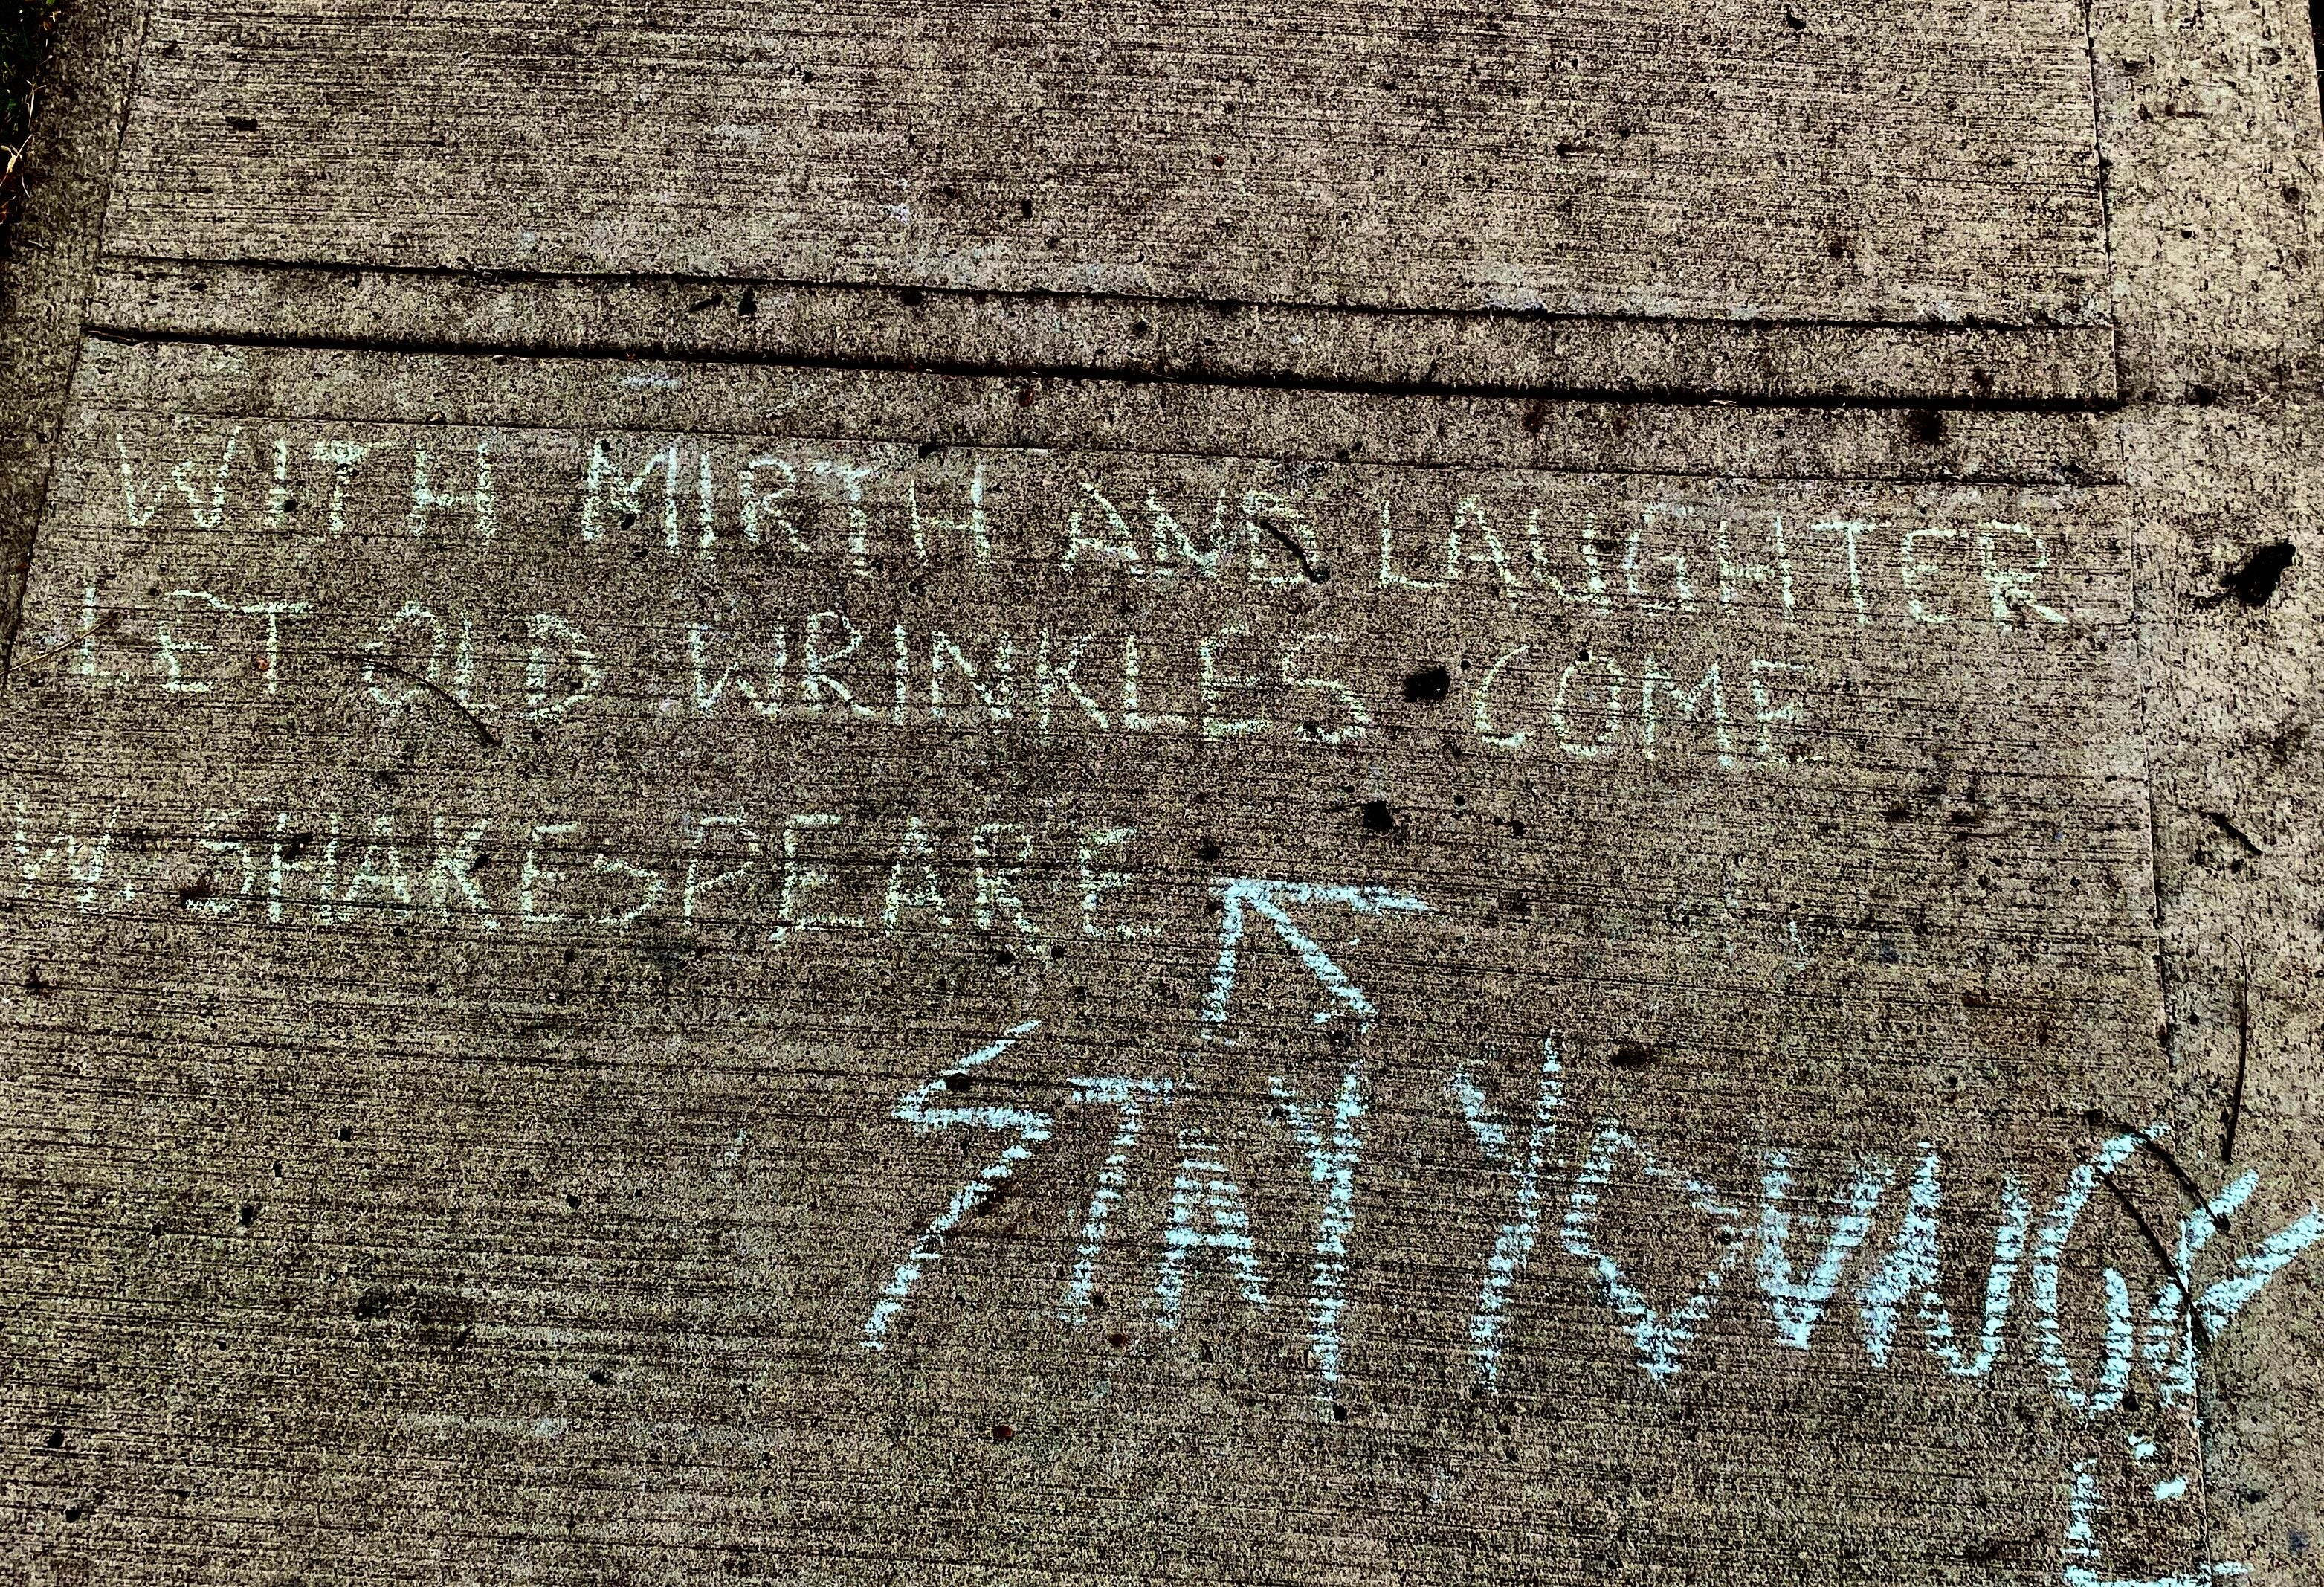 WITH MIRTH AND LAUGHTER
LET OLD WRINKLES COME
W. SHAKESPEARE
STAY YOUNG